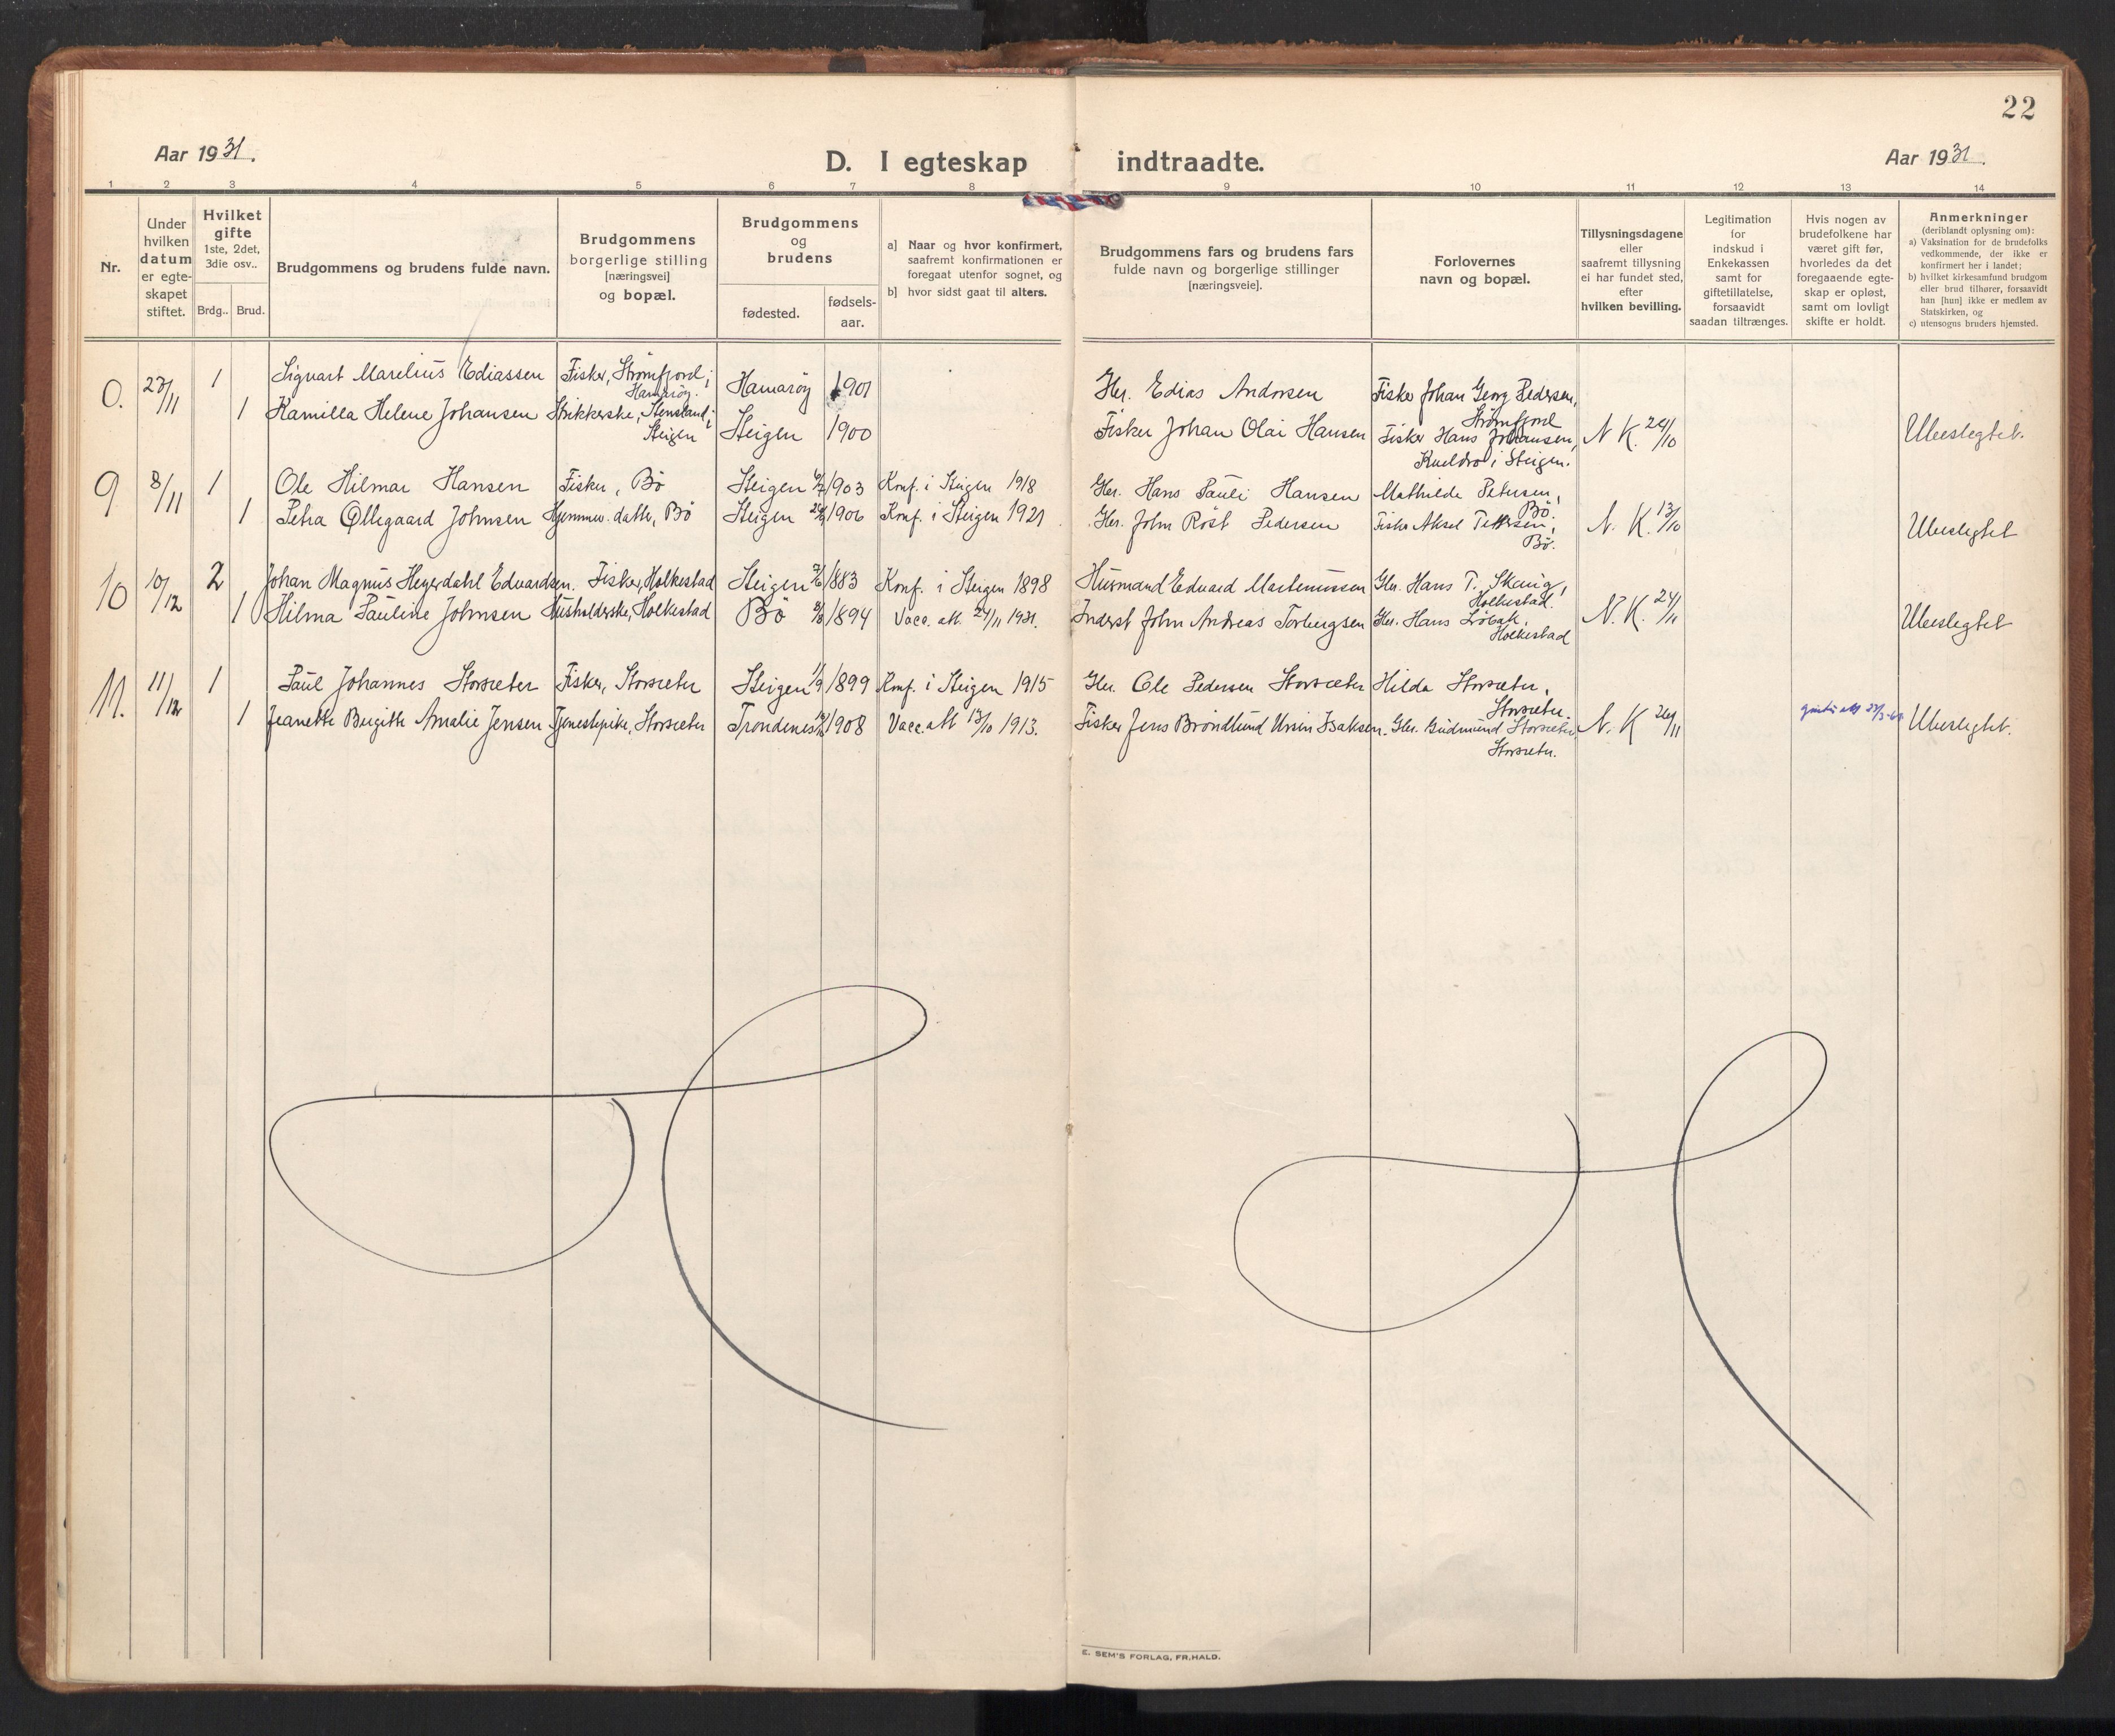 22
Aar 1931.
D. I egteskap indtraadte.
Aar 1931.
1 2 3 4 5 6 7 8 9 10 11 12 13 14
Nr.
Under
hvilken
datum
er egte-
skapet
stiftet.
Hvilket
gifte
1ste, 2det,
3die osv..
Brdg.. Brud.
Brudgommens og brudens fulde navn.
Brudgommens
borgerlige stilling
[næringsvei]
og bopæl.
Brudgommens
og
brudens
fødested.
fødsels-
aar.
a] Naar og hvor konfirmert,
saafremt konfirmationen er
foregaat utenfor sognet, og
b] hvor sidst gaat til alters.
Brudgommens fars og brudens fars
fulde navn og borgerlige stillinger
[næringsveie].
Forlovernes
navn og bopæl.
Tillysningsdagene
eller
saafremt tillysning
ei har fundet sted,
efter
hvilken bevilling.
Legitimation
for
indskud i
Enkekassen
samt for
giftetillatelse,
forsaavidt
saadan tiltrænges.
Hvis nogen av
brudefolkene har
været gift før,
hvorledes da det
foregaaende egte-
skap er opløst,
samt om lovligt
skifte er holdt.
Anmerkninger
(deriblandt oplysning om):
a) Vaksination for de brudefolks
vedkommende, der ikke er
konfirmert her i landet;
b) hvilket kirkesamfund brudgom
eller brud tilhører, forsaavidt
han [hun] ikke er medlem av
Statskirken, og
c) utensogns bruders hjemsted.
0. 23/11 1 Sigvart Marelius Ediassen Fisker, Strømfjord, Hamarøy 1901 Gbr. Edias Andorsen Fisker Johan Georg Pedersen,
Hamarøy. Strømfjord
1 Kamilla Helene Johansen Strikkerske, Stensland, Steigen 1900 Fisker Johan Olai Hansen Fisker Hans Johansen, N K. 24/10 Ubeslegtet.
Steigen i Steigen.
9 8/11 1 Ole Hilmar Hansen Fisker, Bø Steigen 1903 Konf. i Steigen 1918 Gbr. Hans Pauli Hansen Mathilde Petersen,
Bø.
1 Petra Ollegaard Johnsen Hjemmev. datter, Bø Steigen 1906 Konf. i Steigen 1921 Gbr. John Røst Pedersen Fisker Aksel Pettersen, N. K. 13/10 Ubeslegtet
Bø.
10 10/12 2 Johan Magnus Heyerdahl Edvardsen Fisker, Holkestad Steigen 1883 Konf. i Steigen 1898 Husmand Edvard Martenussen Gbr. Hans T. Skaug,
Holkestad.
1 Hilma Pauline Johnsen Husholderske, Holkestad Bø 1894 Vacc. att. 24/11 1931. Inderst John Andreas Torbergsen Gbr. Hans Løbak, N. K. 24/11 Ubeslegtet
Holkestad
11. 11/12 1 Paul Johannes Storsæter Fisker, Storsæter Steigen 1/9 1899 Konf. i Steigen 1915 Gbr. Ole Pedersen Storsæter Hilda Storsæter,
Storsæter.
1 Jeanette Birgitte Amalie Jensen Tjenestepike, Storsæter Trondenes 1908 Vacc. att 13/10 1913. Fisker Jens Brøndlund Ursin Isaksen. Gbr. Gudmund Storsæter N. K 26/11 Ubeslegtet.
Storsæter.
E. SEM'S FORLAG, FR.HALD.